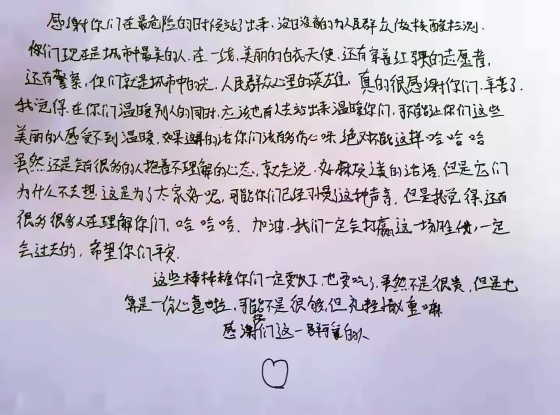 感谢你们在最危险的日时候站了出来，没日没夜的为人民群众做核酸检测.
你们现在是城市中最美的人，在一线，美丽的白衣天使，还有穿着红马甲的志愿者，
还有警察，你们就是城市中的光，人民群众心里的英雄，真的很感谢你们，辛苦了.
我觉得在你们温暖别人的同时，应该也有人去站出来温暖你们，不能让你们这些
美丽的人感受不到温暖，如果这样的话你们该有多伤心呀，绝对不能这样哈哈哈
虽然还是有很多的人抱着不理解的心态，就会说，好麻烦之类的话语，但是它们
为什么不去想，这是为了大家好呢，可能你们已经习惯这种声音，但是我觉得，还有
很多很多人在理解你们，哈哈哈，加油.我们一定会打赢这一场胜仗，一定
会过去的，希望你们平安.
这些棒棒糖你们一定要收下，也要吃了，虽然不是很贵，但是也
算是一份心意啦，可能不是很够，但礼轻情意重嘛
感谢你们这一群可爱的人